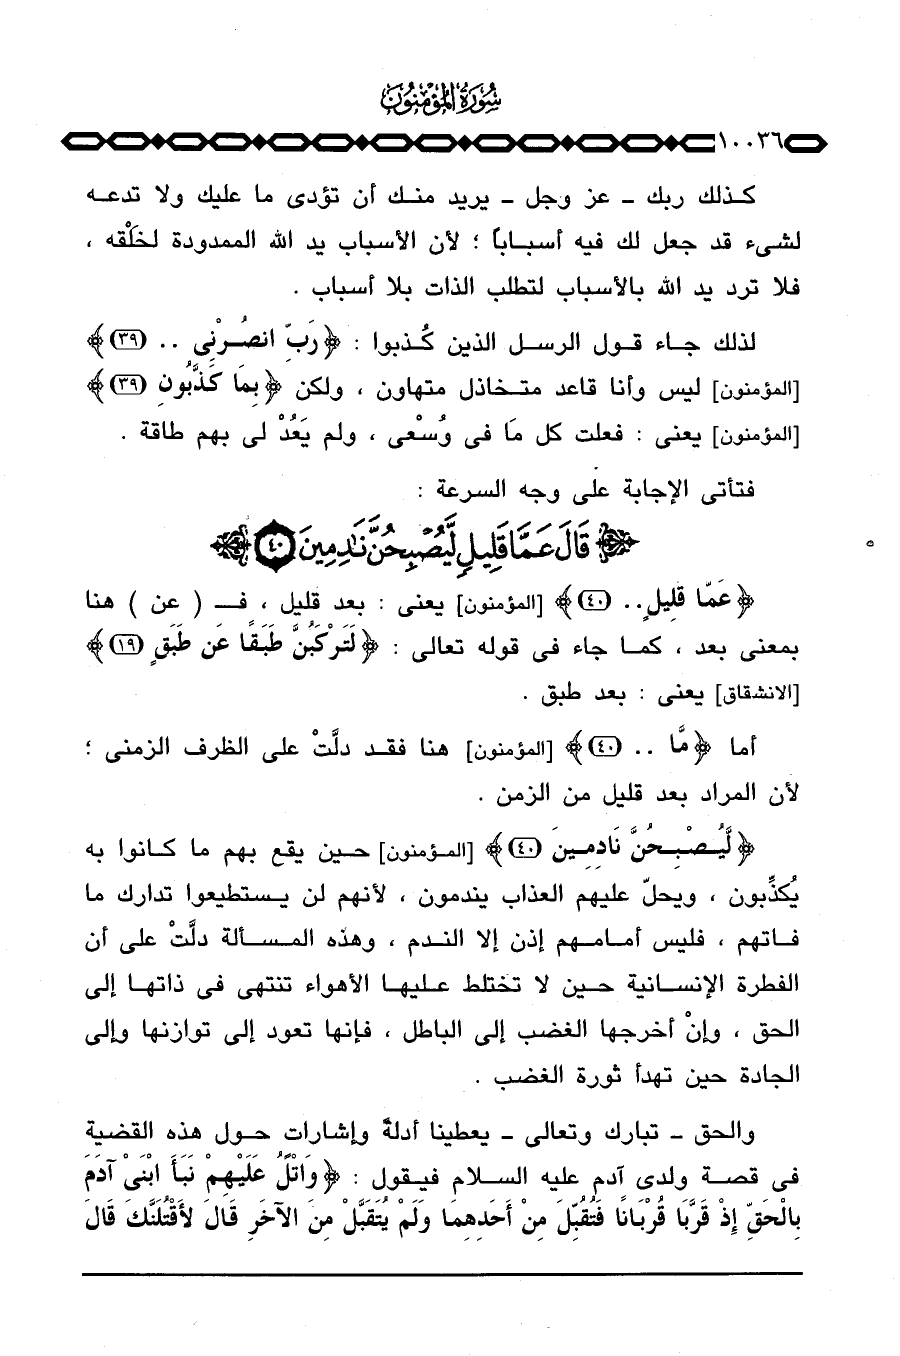 سُورَةُ المُؤْمِنُونَ
١٠٠٣٦
كذلك ربك - عز وجل - يريد منك أن تؤدى ما عليك ولا تدعه
لشىء قد جعل لك فيه أسباباً ؛ لأن الأسباب يد الله الممدودة لخَلْقه ،
فلا ترد يد الله بالأسباب لتطلب الذات بلا أسباب .
لذلك جاء قول الرسل الذين كُذبوا : ﴿ رَبِّ انصُرْنِى .. (٣٩) ﴾
[المؤمنون] ليس وأنا قاعد متخاذل متهاون ، ولكن ﴿ بِمَا كَذَّبُونِ (٣٩) ﴾
[المؤمنون] يعنى : فعلت كل مَا فى وُسْعى ، ولم يَعُدْ لى بهم طاقة .
فتأتى الإجابة على وجه السرعة :
﴿ قَالَ عَمَّا قَلِيلٍ لَّيُصْبِحُنَّ نَٰدِمِينَ ٤٠ ﴾
﴿ عَمَّا قَلِيلٍ .. (٤٠) ﴾ [المؤمنون] يعنى : بعد قليل ، فـ ( عن ) هنا
بمعنى بعد ، كما جاء فى قوله تعالى : ﴿ لَتَرْكَبُنَّ طَبَقًا عَن طَبَقٍ (١٩) ﴾
[الانشقاق] يعنى : بعد طبق .
أما ﴿ مَّا .. (٤٠) ﴾ [المؤمنون] هنا فقد دلَّتْ على الظرف الزمنى ؛
لأن المراد بعد قليل من الزمن .
﴿ لَّيُصْبِحُنَّ نَادِمِينَ (٤٠) ﴾ [المؤمنون] حين يقع بهم ما كانوا به
يُكذِّبون ، ويحلّ عليهم العذاب يندمون ، لأنهم لن يستطيعوا تدارك ما
فاتهم ، فليس أمامهم إذن إلا الندم ، وهذه المسألة دلَّتْ على أن
الفطرة الإنسانية حين لا تختلط عليها الأهواء تنتهى فى ذاتها إلى
الحق ، وإنْ أخرجها الغضب إلى الباطل ، فإنها تعود إلى توازنها وإلى
الجادة حين تهدأ ثورة الغضب .
والحق - تبارك وتعالى - يعطينا أدلةً وإشارات حول هذه القضية
فى قصة ولدى آدم عليه السلام فيقول : ﴿ وَاتْلُ عَلَيْهِمْ نَبَأَ ابْنَىْ آدَمَ
بِالْحَقِّ إِذْ قَرَّبَا قُرْبَانًا فَتُقُبِّلَ مِنْ أَحَدِهِمَا وَلَمْ يُتَقَبَّلْ مِنَ الآخَرِ قَالَ لأَقْتُلَنَّكَ قَالَ